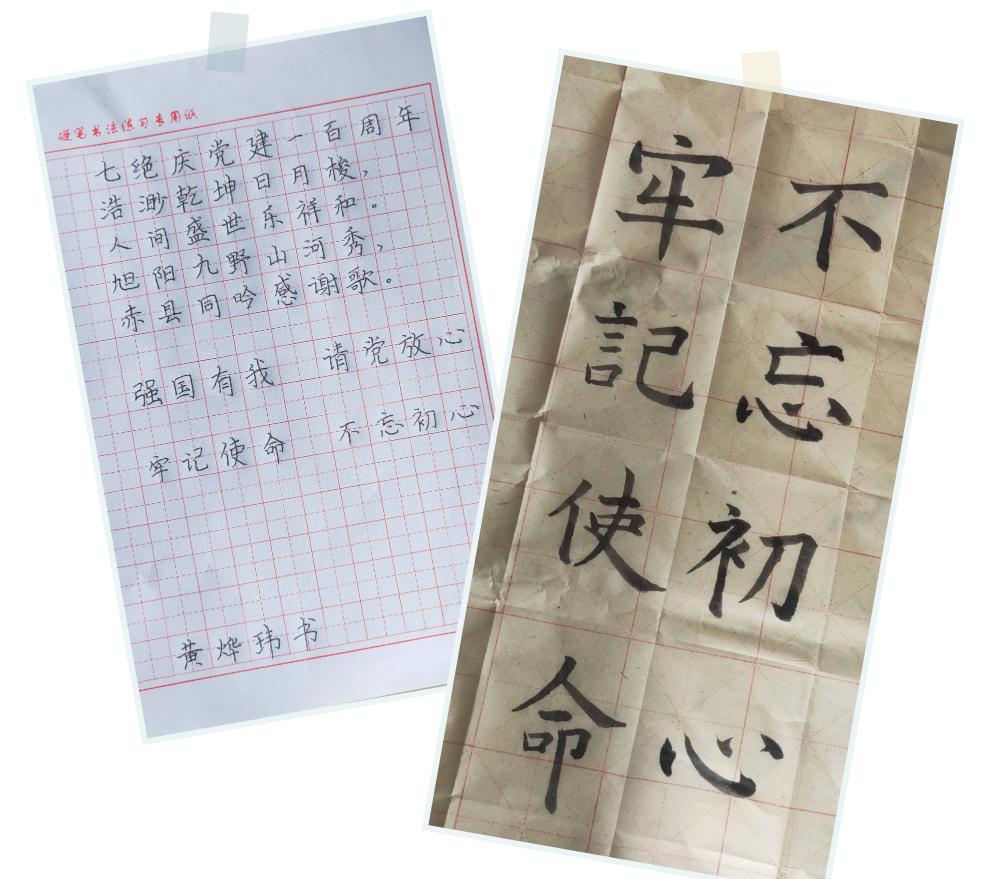 硬笔书法练习专用纸
七绝庆党建一百周年
浩渺乾坤日月梭，
人间盛世乐祥和。
旭阳九野山河秀，
赤县同吟感谢歌。
强国有我 请党放心
牢记使命 不忘初心
黄烨玮书
不忘初心
牢記使命